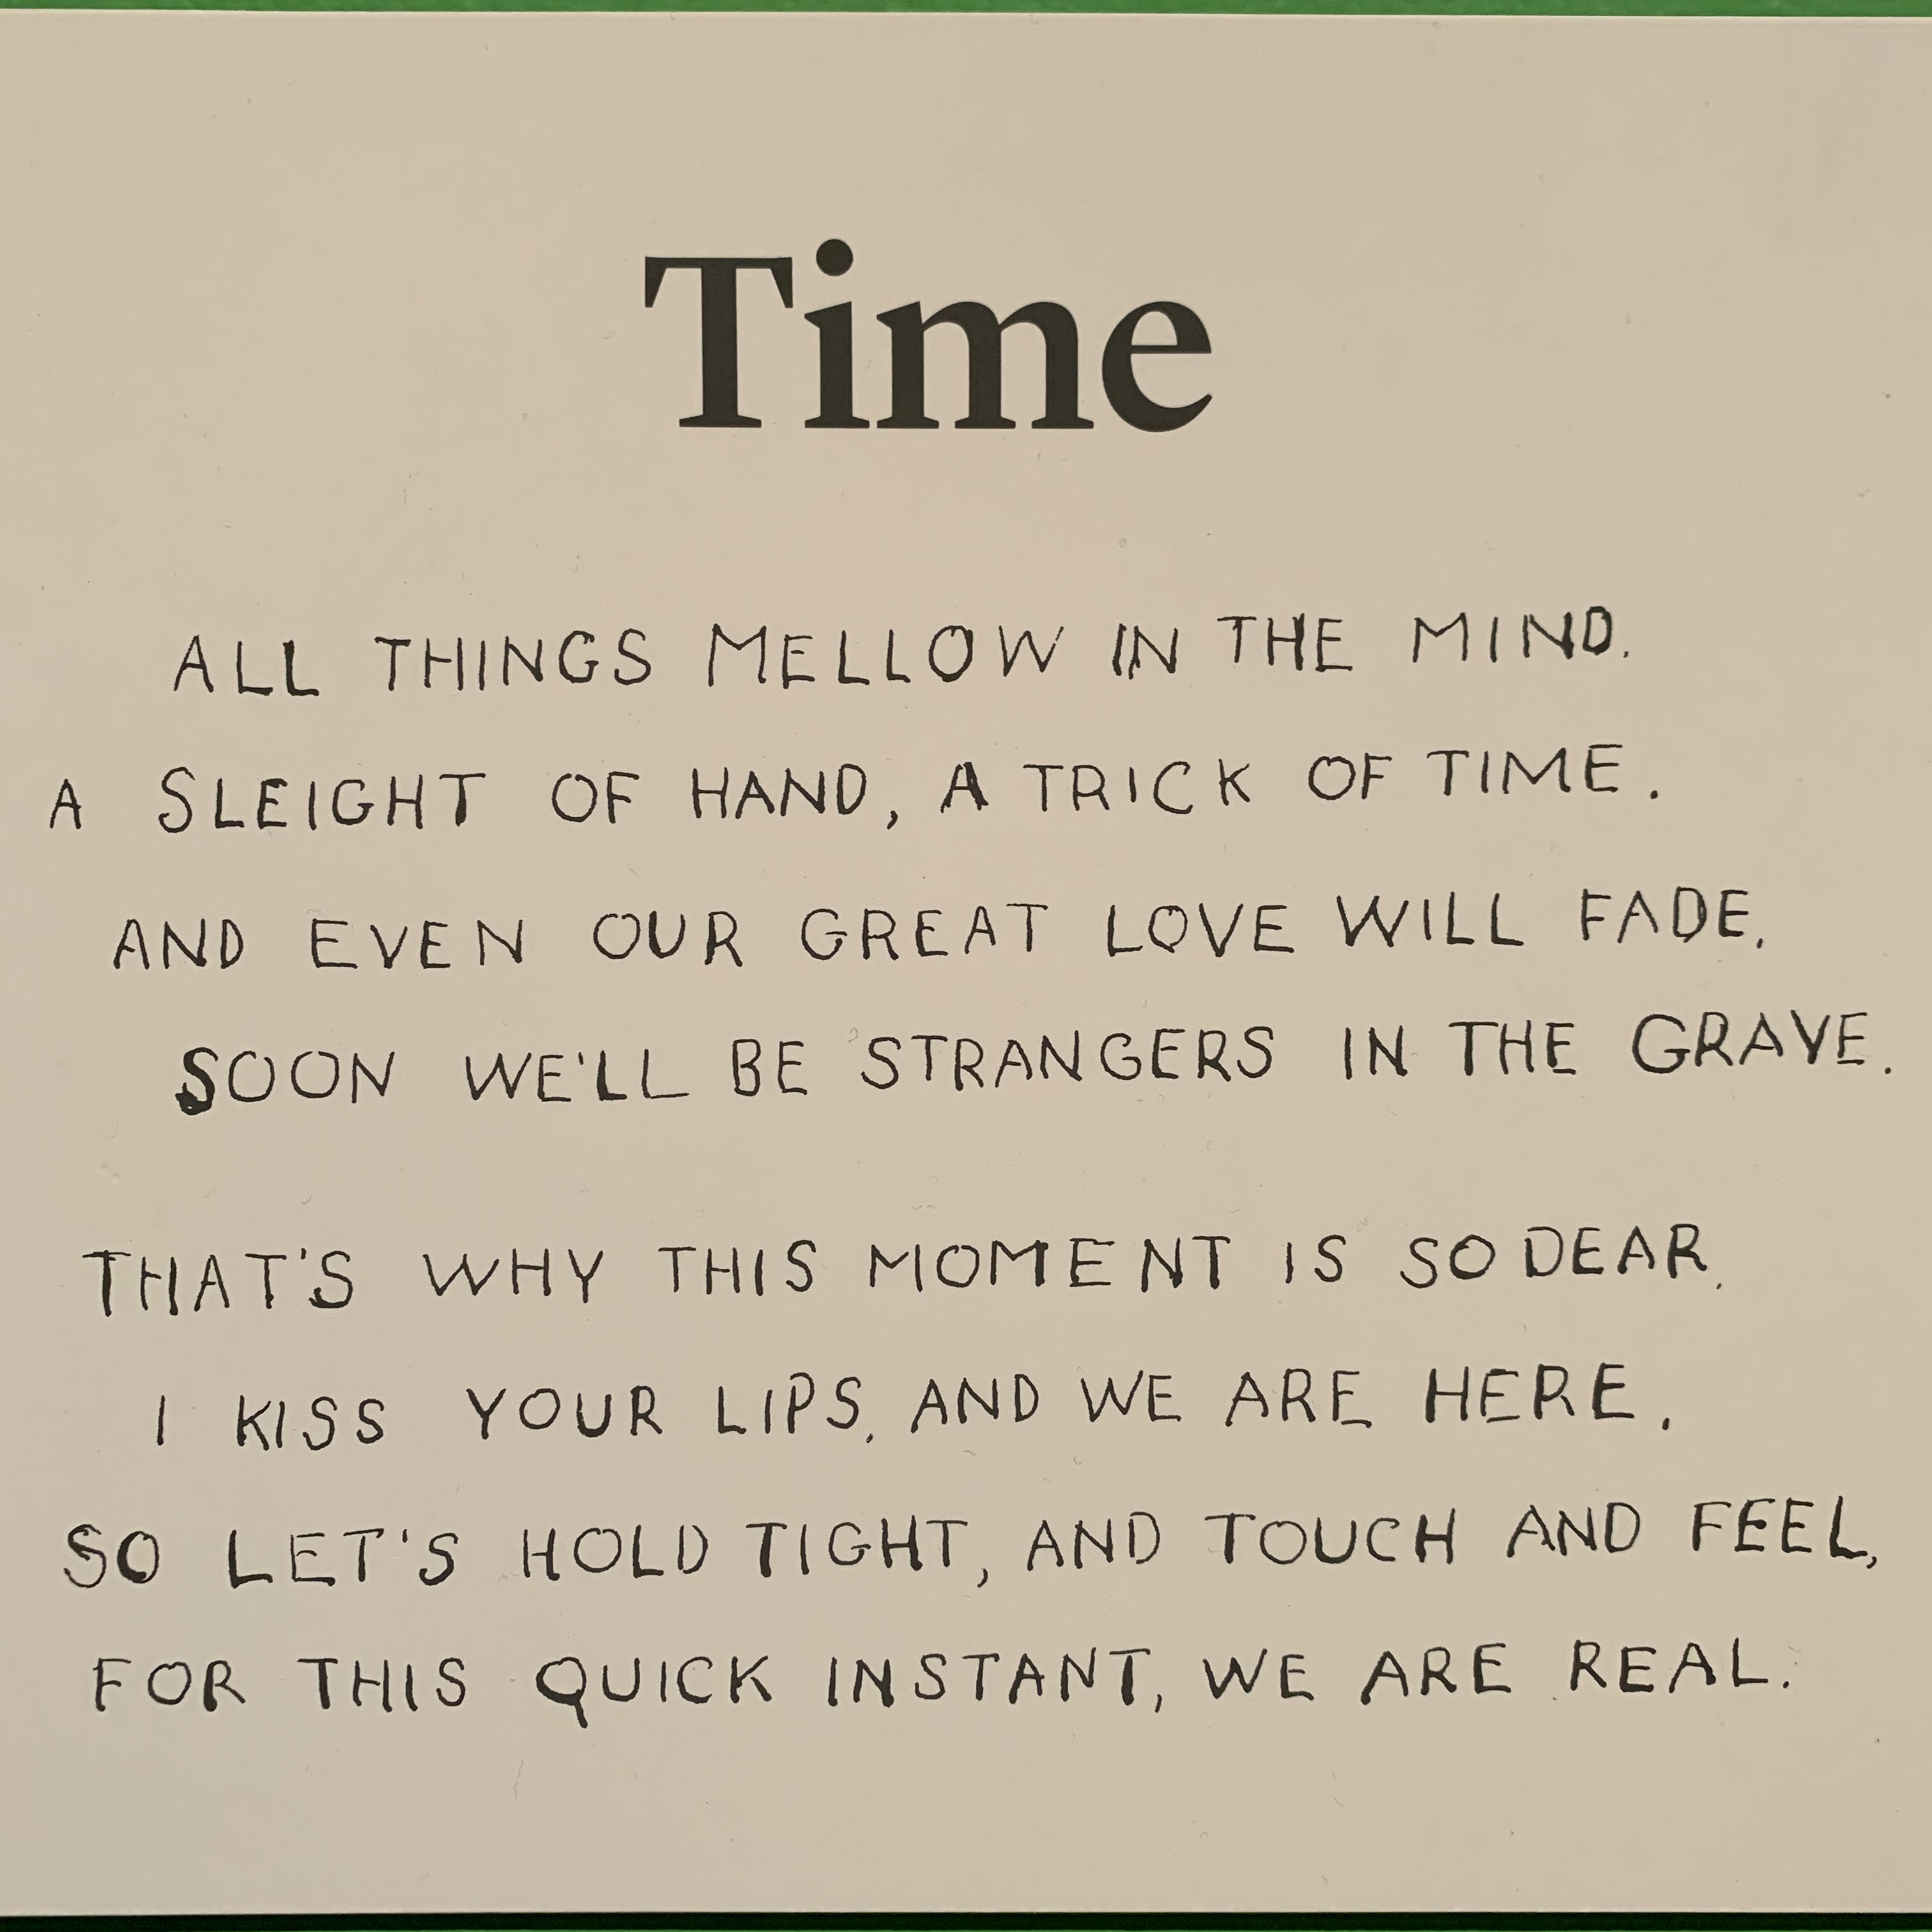 Time
ALL THINGS MELLOW IN THE MIND.
A SLEIGHT OF HAND, A TRICK OF TIME.
AND EVEN OUR GREAT LOVE WILL FADE.
SOON WE'LL BE STRANGERS IN THE GRAVE.
THAT'S WHY THIS MOMENT IS SO DEAR.
I KISS YOUR LIPS, AND WE ARE HERE.
SO LET'S HOLD TIGHT, AND TOUCH AND FEEL,
FOR THIS QUICK INSTANT, WE ARE REAL.